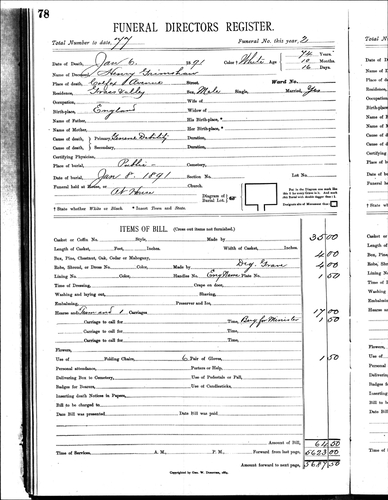 78
FUNERAL DIRECTORS REGISTER.
Total Number to date, 77 Funeral No. this year, 2
Date of Death, Jan 6. 1891 Color † White Age 74 Years 10 Months 16 Days
Name of Deceased, Henry Grimshaw
Place of Death, Street, Ward No.
Residence, Grass Valley Sex, Male Single, Married, Yes
Occupation, Wife of
Birth-place, England Widow of
Name of Father, His Birth-place, *
Name of Mother, Her Birth-place, *
Cause of Death, Primary, General Debility Duration,
Secondary, Duration,
Certifying Physician,
Place of burial, Public Cemetery,
Date of burial, Jan 8. 1891 Section No. Lot No.
Funeral held at House, or At House Diagram of Burial Lot,
† State whether White or Black. * Insert Town and State.
ITEMS OF BILL. (Cross out items not furnished.)
Casket or Coffin No. Style, Made by 35 00
Length of Casket, Feet, Inches. Width of Casket, Inches.
Box, Pine, Chestnut, Oak, Cedar or Mahogany, 4 00
Robe, Shroud, or Dress No. Color, Made by Dig Grave 4 00
Lining No. Color, Handles No. Plate No. 1 50
Time of Dressing, Crape on door,
Washing and laying out, Shaving,
Embalming, Preserver and Ice,
Hearse and Team and 1 Carriages 17 00
Carriage to call for Time, Bug for Minister 1 50
Carriage to call for Time,
Carriage to call for Time,
Flowers,
Use of Folding Chairs, 6 Pair of Gloves, 1 50
Personal attendance, Porters or Help,
Delivering Box to Cemetery, Use of Pedestals or Pall,
Badges for Bearers, Use of Candlesticks,
Inserting death Notices in Papers,
Bill to be charged to
Date Bill was presented Date Bill was paid
Amount of Bill, 64 50
Time of Services, A. M., P. M. Forward from last page, 5623 00
Amount forward to next page, 5687 50